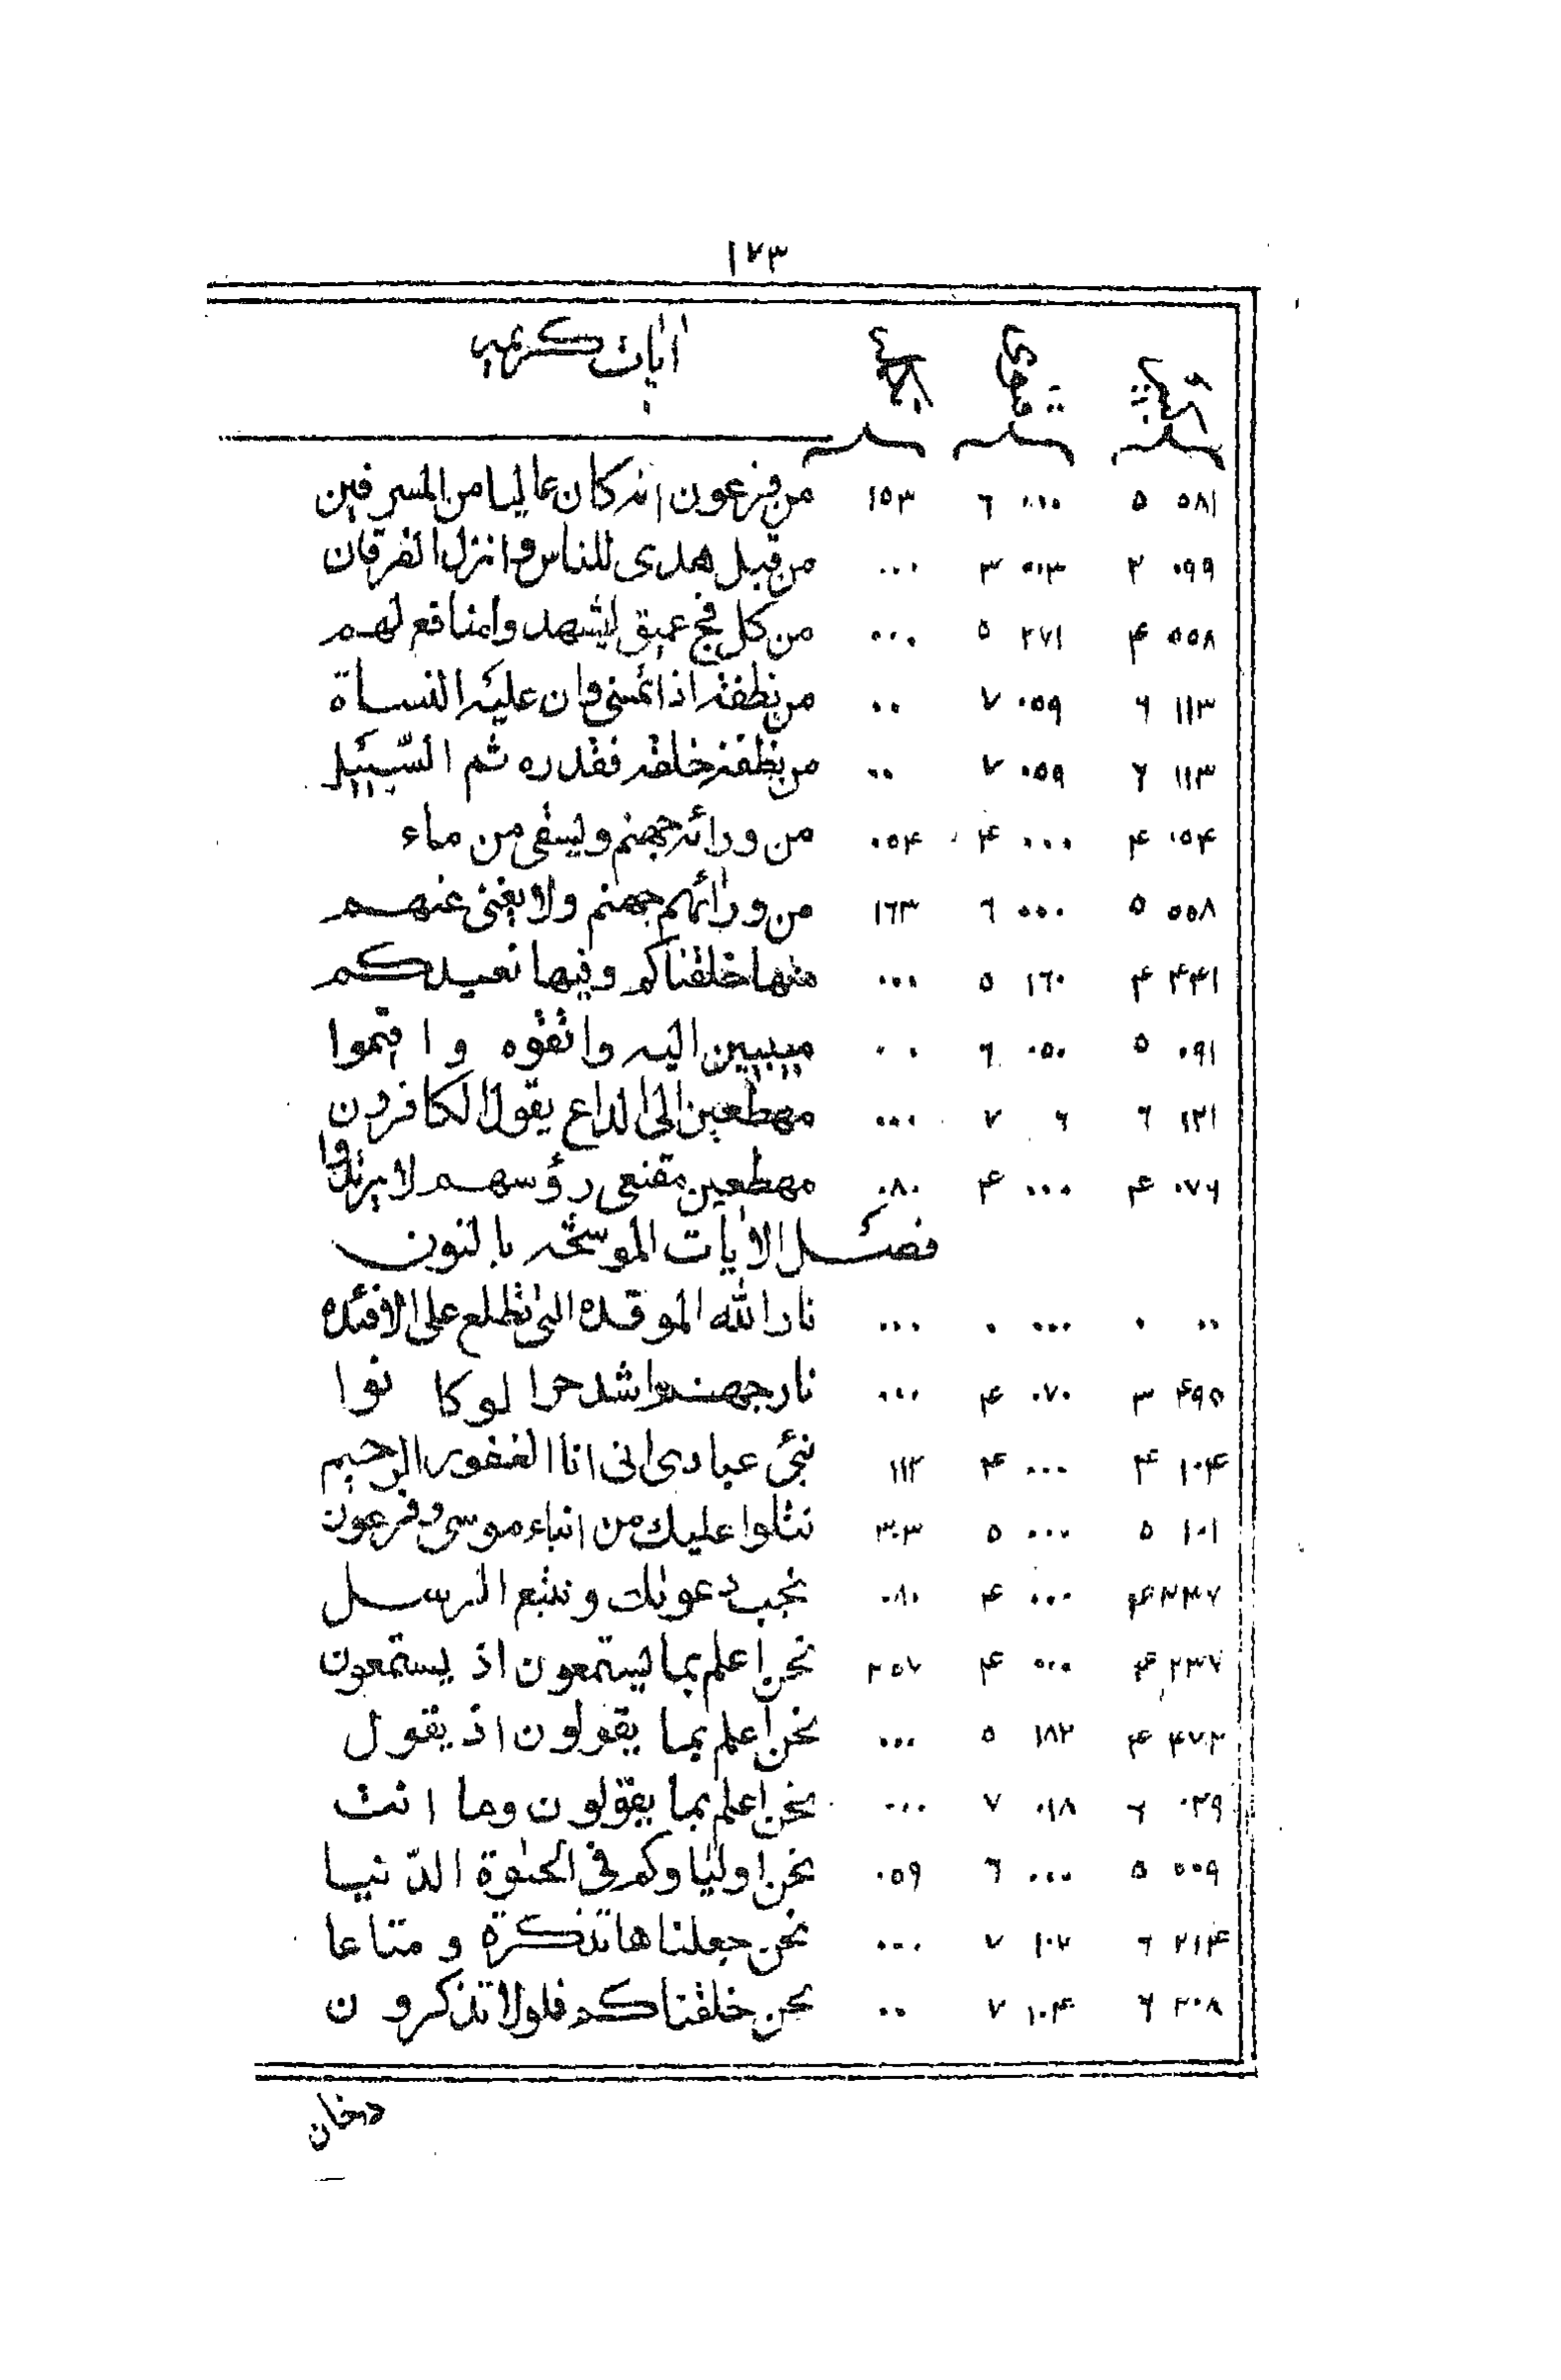 ١٢٣
آيات كريمه
٥٨١ ٥ ٠٠٠ ٦ ١٥٣ من فرعون انه كان عاليا من المسرفين
٠٩٩ ٢ ٠١٣ ٣ ... من قبل هدى للناس وانزل الفرقان
٥٥٨ ۴ ٢٧١ ٥ ... من كل فج عميق ليشهدوا منافع لهم
١١٣ ٦ ٠٥٩ ٧ .. من نطفة اذا تمنى وان عليه النساة
١١٣ ٦ ٠٥٩ ٧ .. من نطفة خلقه فقدره ثم السبيل
٠٥۴ ۴ ٠٠٠ ۴ ٠٥۴ من ورائه جهنم ويسقى من ماء
٥٥٨ ٥ ٠٠٠ ٦ ١٦٣ من ورائهم جهنم ولا يغنى عنهم
۴۴١ ۴ ١٦٠ ٥ ... منها خلقناكم وفيها نعيدكم
٠٩١ ٥ ٠٥٠ ٦ .. منيبين اليه واتقوه واقيموا
١٢١ ٦ ٦ ٧ ... مهطعين الى الداع يقول الكافرون
٠٧٦ ۴ ٠٠٠ ۴ ٠٨٠ مهطعين مقنعى رؤسهم لا يرتد وا
فصل الايات الموشحه بالنون
.. . ... . ... نار الله الموقده التى تطلع على الافئده
۴٩٥ ٣ ٠٧٠ ۴ ... نار جهنم اشد حرا لو كانوا
١٠۴ ۴ ٠٠٠ ۴ ١١٢ نبئ عبادى انى انا الغفور الرحيم
١٠١ ٥ ٠٠٠ ٥ ٣٠٣ نتلوا عليك من انباء موسى وفرعون
٢٣٧ ۴ ٠٠٠ ۴ ٠٨٠ نجب دعوتك ونتبع الرسل
٢٣٧ ۴ ٠٠٠ ۴ ٢٥٧ نحن اعلم بما يستمعون اذ يستمعون
۴٧٢ ۴ ١٨٢ ٥ ... نحن اعلم بما يقولون اذ يقول
٠٢٩ ٦ ٠١٨ ٧ ... نحن اعلم بما يقولون وما انت
٥٠٩ ٥ ٠٠٠ ٦ ٠٥٩ نحن اولياوكم فى الحيوة الدّنيا
٢١۴ ٦ ١٠٧ ٧ ... نحن جعلناها تذكرة ومتاعا
٢٠٨ ٦ ١٠۴ ٧ .. نحن خلقناكم فلولا تذكرون
دخان